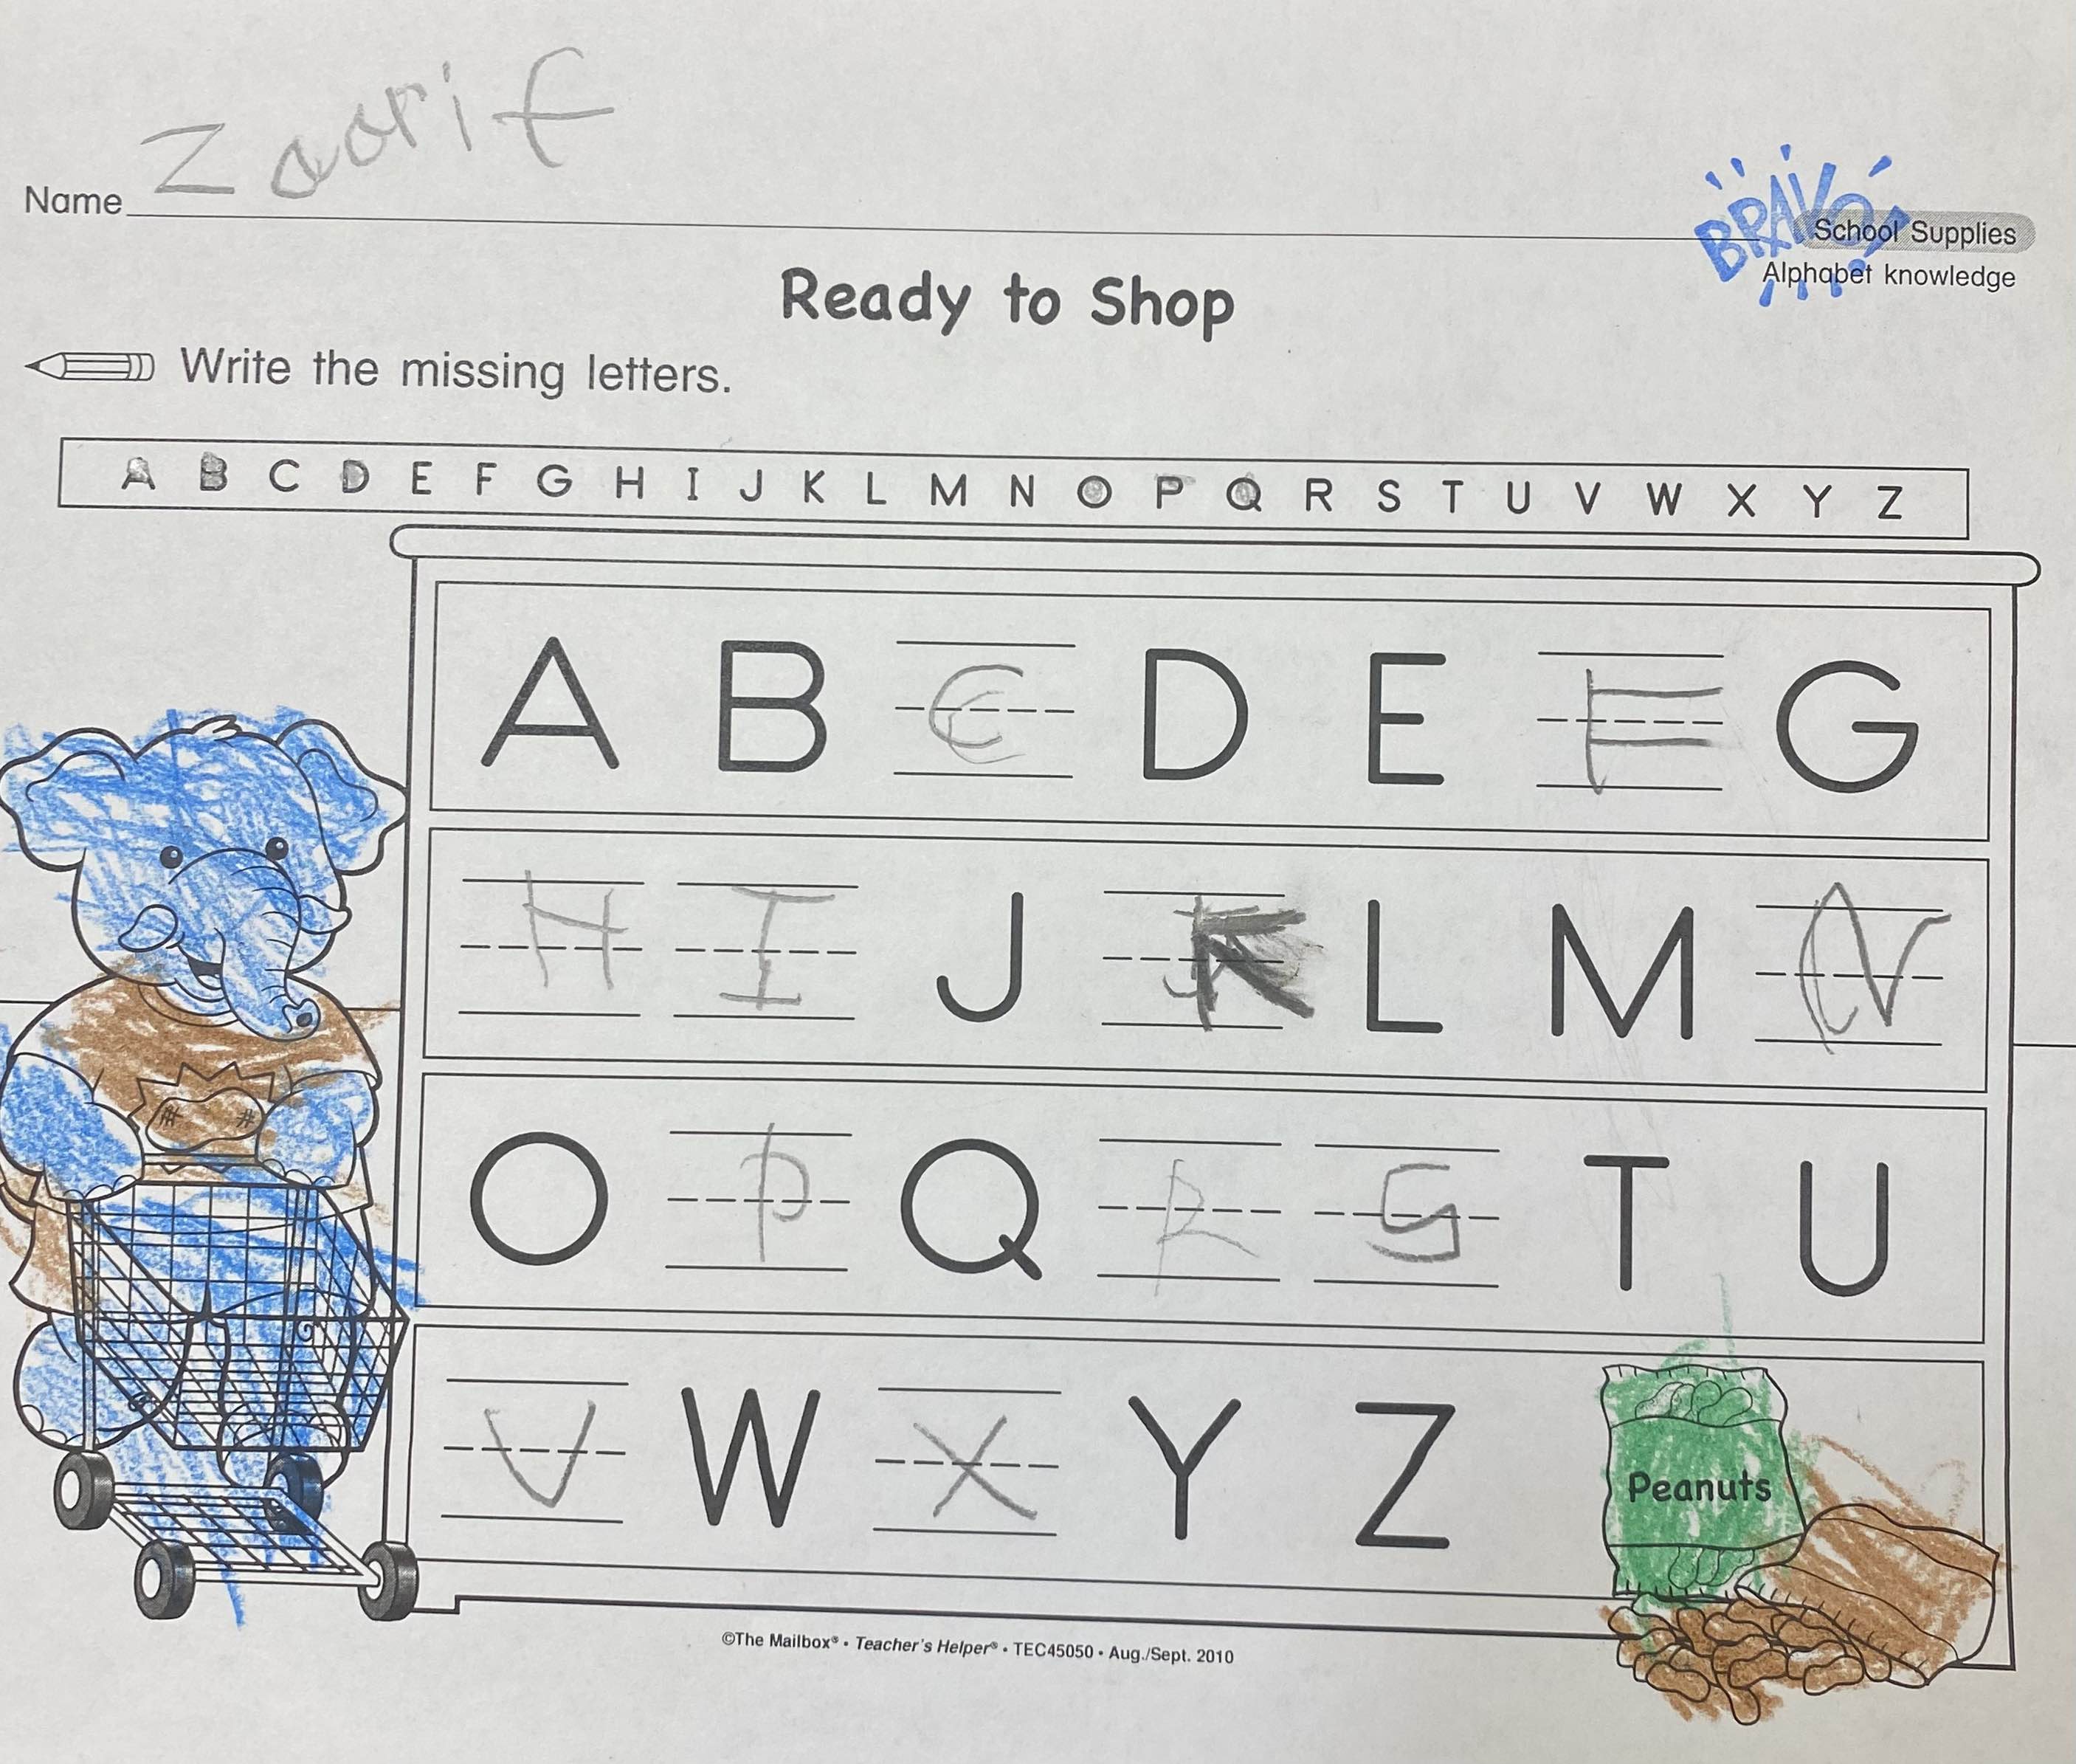 Zaarif
Name
BRAVO!
School Supplies
Alphabet knowledge
Ready to Shop
Write the missing letters.
A B C D E F G H I J K L M N O P Q R S T U V W X Y Z
A B C D E F G
H I J K L M N
O P Q R S T U
V W X Y Z
Peanuts
©The Mailbox® • Teacher's Helper® • TEC45050 • Aug./Sept. 2010